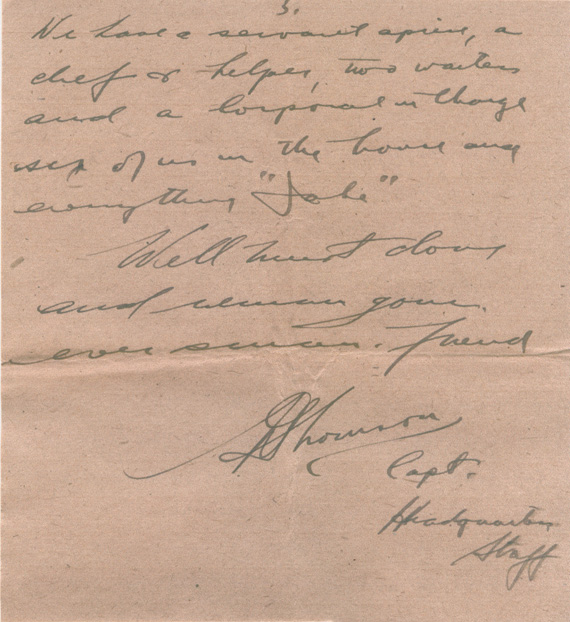 3.
We have a servant apiece, a
chef & helper, two waiters
and a Corporal in charge
six of us in the house and
everything "Jake"
Well must close
and remain your
ever sincere friend
Thomson
Capt.
Headquarters
Staff